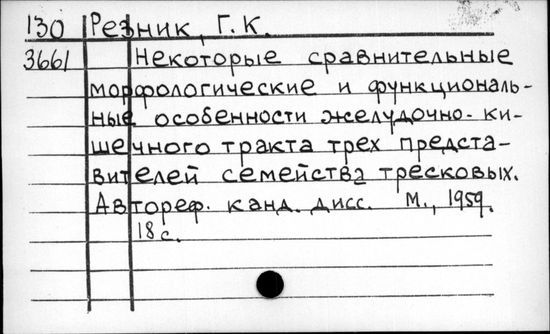 130 Резник, Г. К.
3661 Некоторые сравнительные
морфологические и функциональ-
ные особенности желудочно-ки-
шечного тракта трех предста-
вителей семейства тресковых.
Автореф. канд. дисс. М., 1959.
18 с.